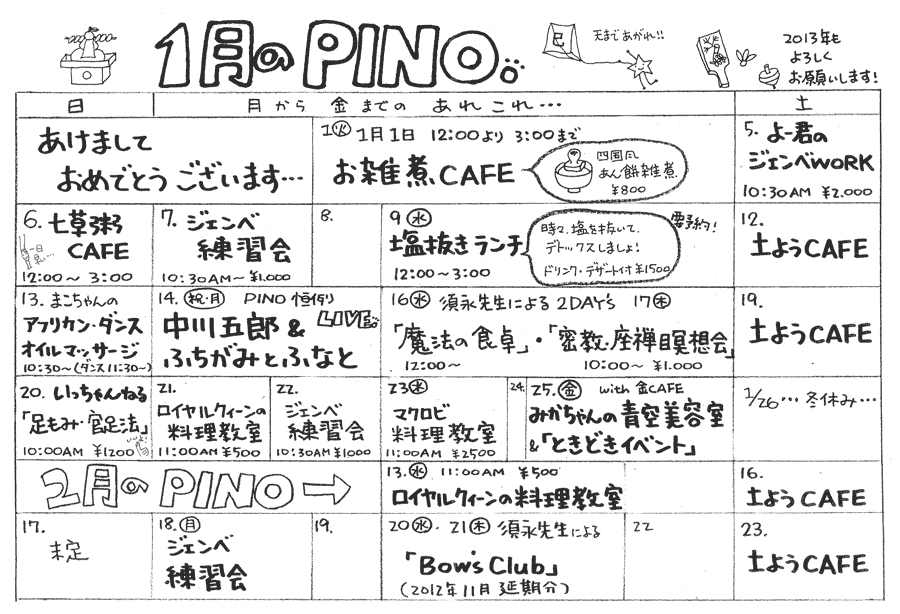 1月のPINO.
巳
天まであがれ!!
2013年も
よろしく
お願いします!
日
月から 金までの あれ これ…
土
あけまして
おめでとう ございます…
1 火 1月1日 12:00より 3:00まで
お雑煮 CAFE
四国風
あん餅雑煮
¥800
5. よー君の
ジェンベWORK
10:30AM ¥2.000
6. 七草粥
CAFE
12:00〜3:00
7. ジェンベ
練習会
10:30AM〜 ¥1.000
8.
9 水
塩抜きランチ
12:00〜3:00
要予約!
時々、塩を抜いて、
デトックスしましょ!
ドリンク・デザート付 ¥1500
12.
土ようCAFE
13. まこちゃんの
アフリカン・ダンス
オイルマッサージ
10:30〜(ダンス11:30〜)
14. 祝・月 PINO 恒例
LIVE
中川五郎 &
ふちがみとふなと
16 水 須永先生による 2DAY's 17 木
「魔法の食卓」・「密教.座禅瞑想会」
12:00〜 10:00〜 ¥1.000
19.
土ようCAFE
20. いっちゃんねる
「足もみ・官足法」
10:00AM ¥1200
21.
ロイヤルクィーンの
料理教室
11:00AM ¥500
22.
ジェンベ
練習会
10:30AM ¥1000
23 水
マクロビ
料理教室
11:00AM ¥2500
24.
25. 金 with 金CAFE
みかちゃんの青空美容室
&「ときどきイベント」
1/26… 冬休み…
2月のPINO →
13. 水 11:00AM ¥500
ロイヤルクィーンの料理教室
16.
土ようCAFE
17.
未定
18. 月
ジェンベ
練習会
19.
20 水 . 21 木 須永先生による
「Bow's Club」
(2012年11月 延期分)
22
23.
土ようCAFE